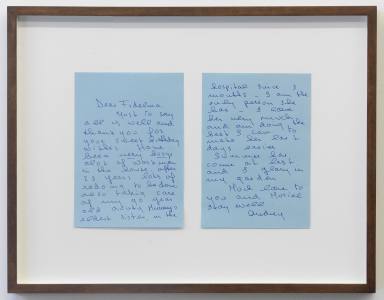 Dear Fidelma
Just to say
all is well and
thank you for
your sweet birthday
wishes. I have
been very busy
alot of workmen
in the house after
23 years lots of
redoing to be done
also taking care
of my 90 year
old aunty Mummy's
eldest sister in the
hospital since 3
months - I am the
only person she
has - I love
her very much
and am doing the
best I can to
make her last
days easier
Summer has
come at last
and I glory in
my garden
Much love to
you and Muriel
stay well
Audrey